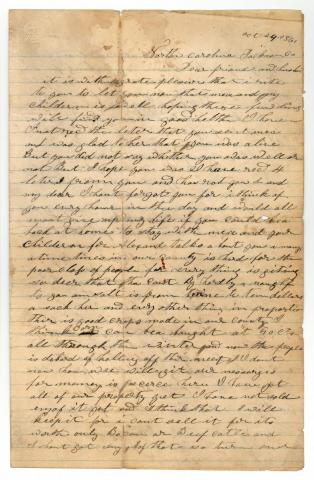 oct 29 1861
North carolina Jackson Co
Dear friend and husband
it is with grate pleasure that i rite
to you to let you now that mee and my
Childern is all well hoping these few lines
will find you in good helth I have
Just rec the leter that you sent mee
and was glad to her that you was alive
But you did not say whether you was well or
not But I hope you was I have rec 4
leters from you and has not
my dear I hant forgot you for i think of
you every hour in the day and could all
most give up my life if you could bea
back at home to stay with mee and your
Childern for they and talks a bout you a many
a time times in our county is hard for the
poor clas of people for every thing is geting
so deer that tha cant By hardly a nought
to go on salt is from to ten dollars
a sack her and every other thing in proportion
ther is good crops made in our county I
think Corn can bea baught at 50 Cts
all through the winter good now the people
is of fating of ther meet I dont
now how wee will git our
for money is scerce her I have got
all of our property yet I have not sold
eny of it yet and I think that I will
keep it for i cant sell it for its
worth only Bacon or Beef catle and
I hant got eny of that to turn our